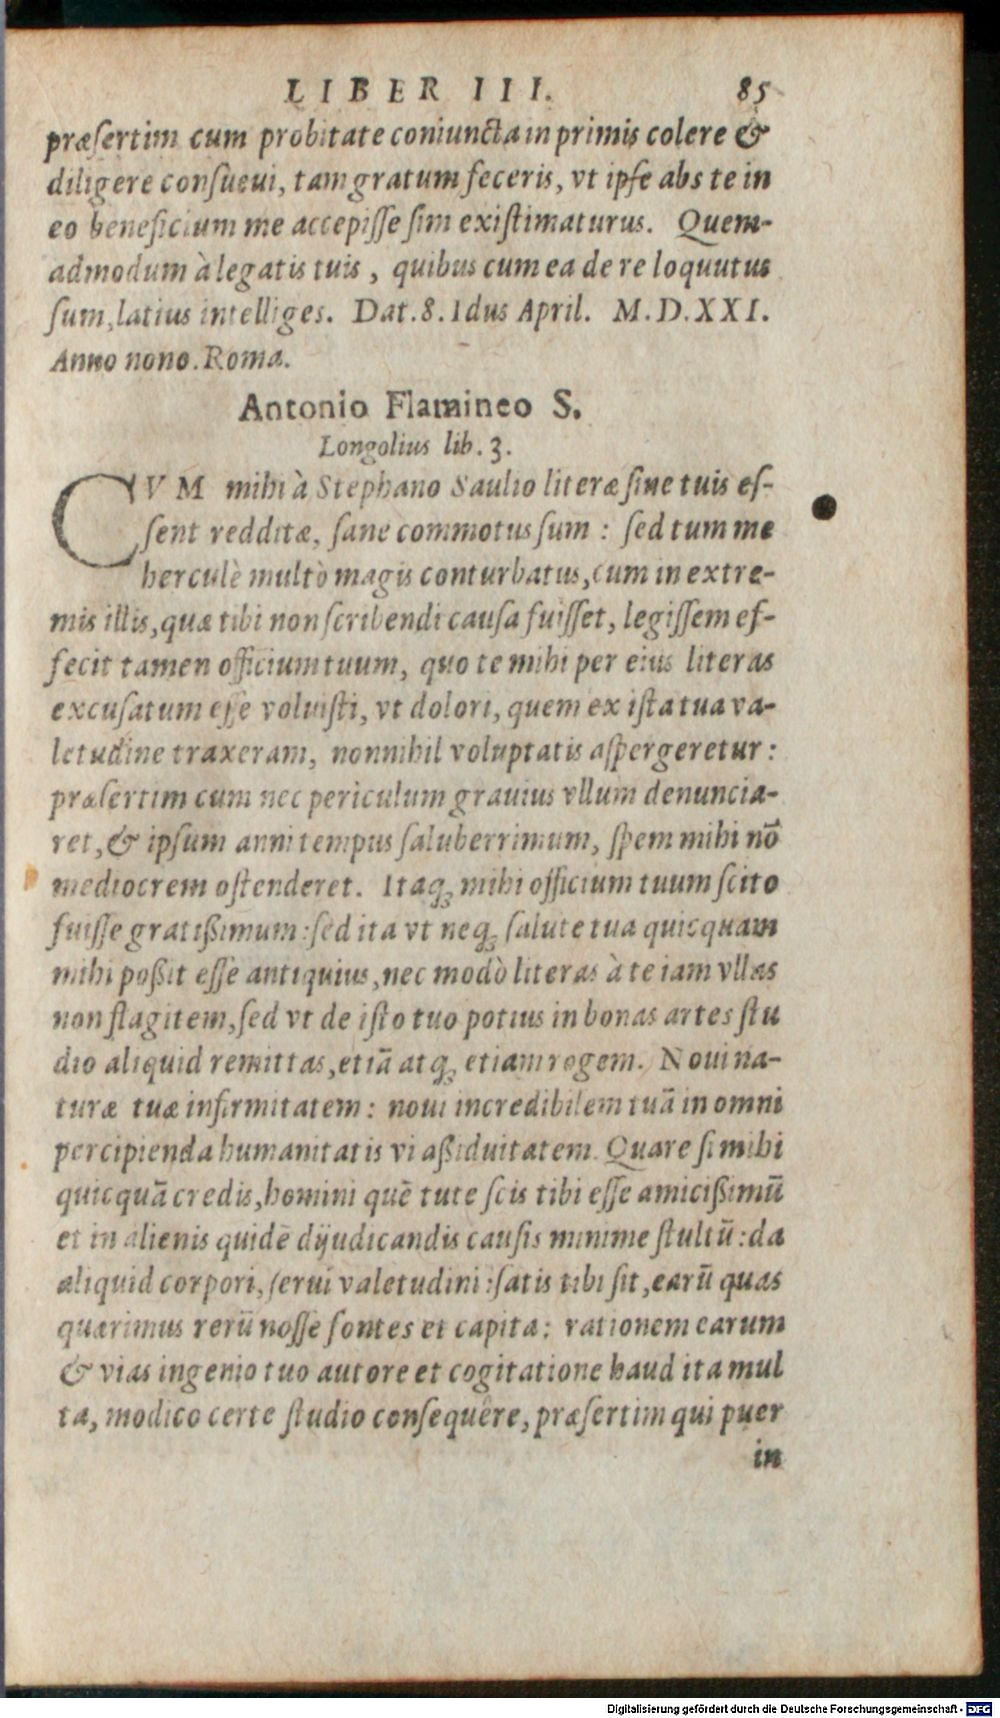 LIBER III. 85
præſertim cum probitate coniuncta in primis colere &
diligere conſueui, tam gratum feceris, vt ipſe abs te in
eo beneficium me accepiſſe ſim exiſtimaturus. Quem-
admodum à legatis tuis, quibus cum ea de re loquutus
ſum, latius intelliges. Dat. 8. Idus April. M.D.XXI.
Anno nono. Roma.
Antonio Flamineo S.
Longolius lib. 3.
CVM mihi à Stephano Saulio literæ ſine tuis eſ-
ſent redditæ, ſane commotus ſum: ſed tum me
herculè multò magis conturbatus, cum in extre-
mis illis, quæ tibi non ſcribendi cauſa fuiſſet, legiſſem ef-
fecit tamen officium tuum, quo te mihi per eius literas
excuſatum eſſe voluiſti, vt dolori, quem ex iſta tua va-
letudine traxeram, nonnihil voluptatis aſpergeretur:
præſertim cum nec periculum grauius vllum denuncia-
ret, & ipſum anni tempus ſaluberrimum, ſpem mihi nō
mediocrem oſtenderet. Itaq; mihi officium tuum ſcito
fuiſſe gratißimum: ſed ita vt neq; ſalute tua quicquam
mihi poßit eſſe antiquius, nec modò literas à te iam vllas
non flagitem, ſed vt de iſto tuo potius in bonas artes ſtu
dio aliquid remittas, etiā atq; etiam rogem. Noui na-
turæ tuæ infirmitatem: noui incredibilem tuā in omni
percipienda humanitatis vi aßiduitatem. Quare ſi mihi
quicquā credis, homini quē tute ſcis tibi eſſe amicißimū
et in alienis quidē dijudicandis cauſis minime ſtultū: da
aliquid corpori, ſerui valetudini: ſatis tibi ſit, earū quas
quærimus rerū noſſe fontes et capita: rationem earum
& vias ingenio tuo autore et cogitatione haud ita mul
ta, modico certe ſtudio conſequêre, præſertim qui puer
in
Digitalisierung gefördert durch die Deutsche Forschungsgemeinschaft - DFG